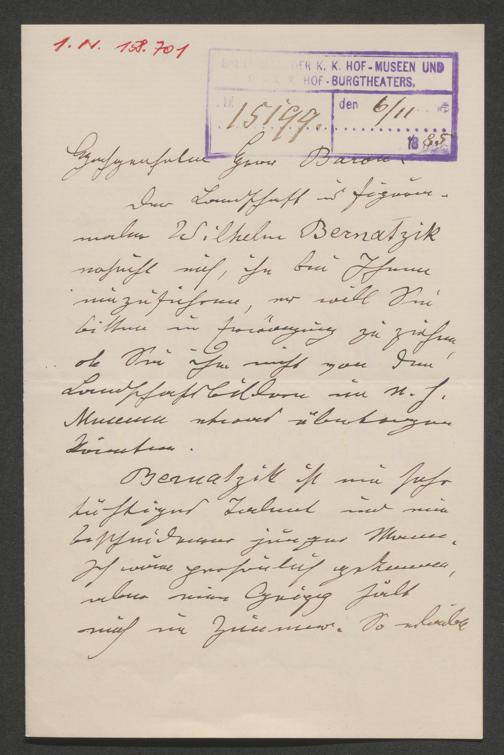 I.N. 158.701
DER K. K. HOF-MUSEEN UND
HOF-BURGTHEATERS.
15199. den 6/11
1885
Hochgeehrter Herr Baron.
Der Landschaft u figuren-
maler Wilhelm Bernatzik
ersucht mich, ihn bei Ihnen
einzuführen, er will Sie
bitten in Erwägung zu ziehen,
ob Sie ihm nicht von den
Landschaftsbildern im n. h.
Museum etwas übertragen
könnten.
Bernatzik ist ein sehr
tüchtiges Talent und ein
bescheidener junger Mann.
Ich wäre persönlich gekommen,
aber eine hält
mich im Zimmer. So erlaube